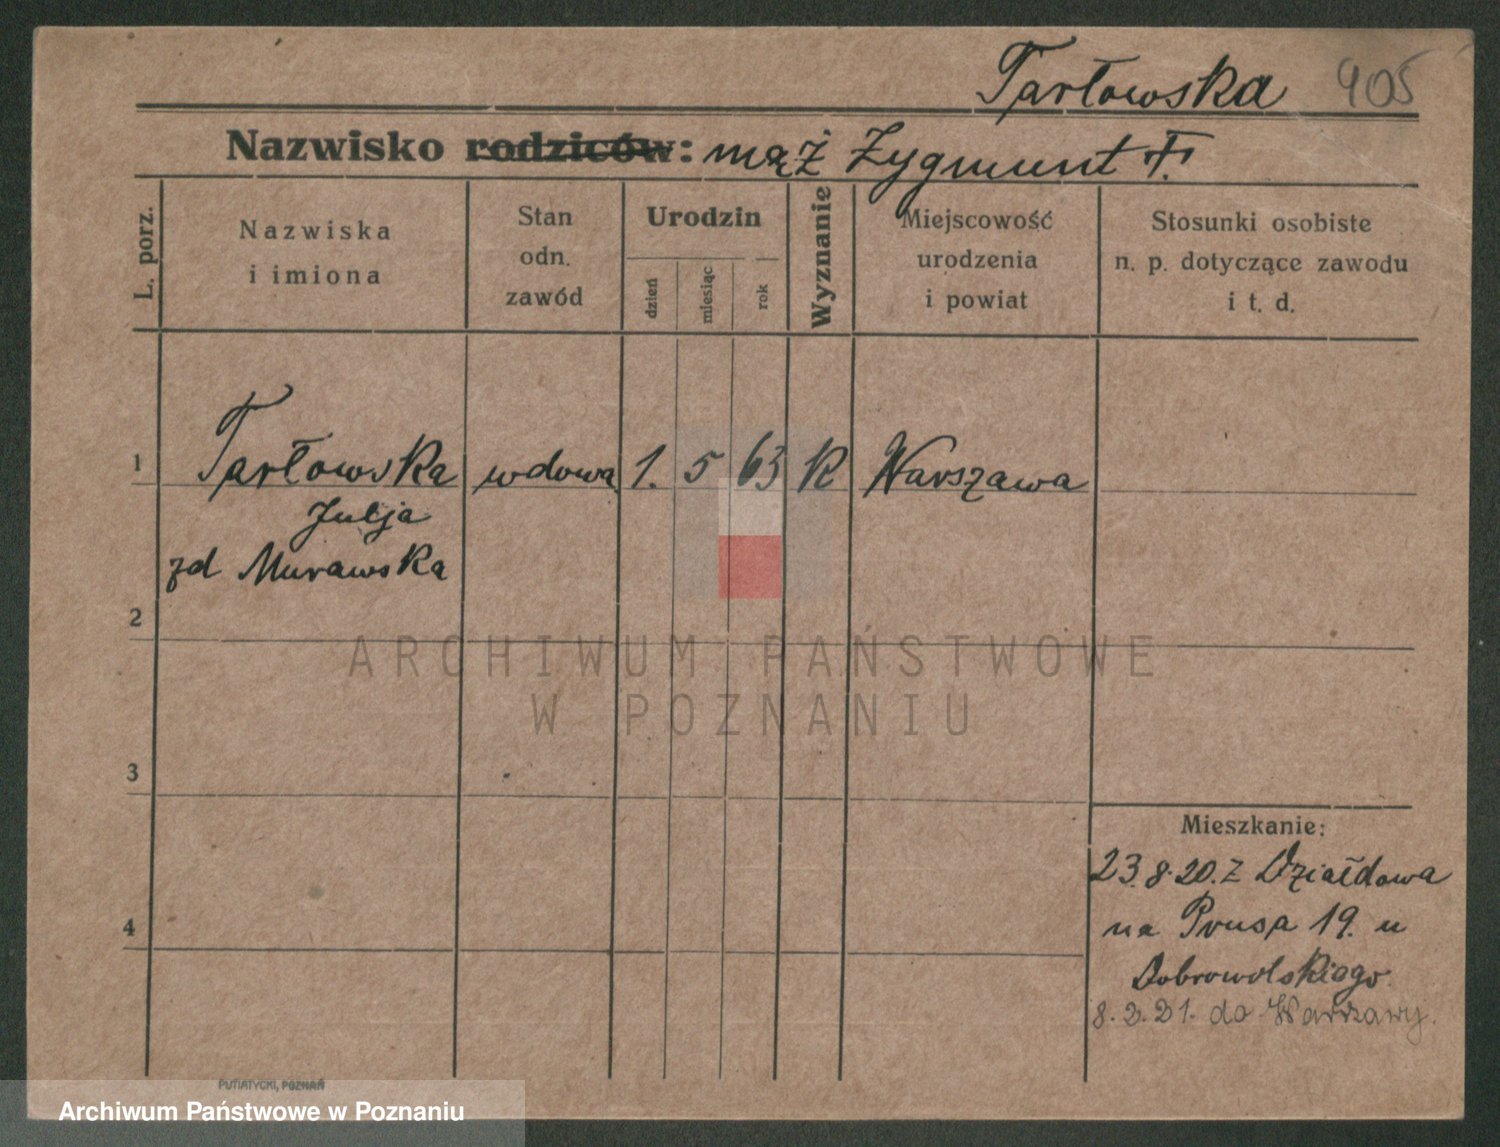 Tarłowska 905
Nazwisko rodziców: mąż Zygmunt T.
L. porz.
Nazwiska
i imiona
Stan
odn.
zawód
Urodzin
dzień
miesiąc
rok
Wyznanie
Miejscowość
urodzenia
i powiat
Stosunki osobiste
n. p. dotyczące zawodu
i t. d.
1 Tarłowska wdowa 1. 5 63 K Warszawa
Julja
zd Murawska
2
ARCHIWUM PAŃSTWOWE
W POZNANIU
3
Mieszkanie:
23.8.20. z Działdowa
4
na Prusa 19. u
Dobrowolskiego.
8.2.21. do Warszawy.
PUTIATYCKI, POZNAŃ
Archiwum Państwowe w Poznaniu